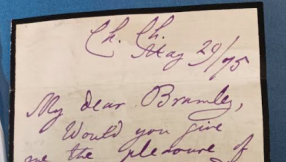 Ch. Ch.
May 29/75
My dear Bramley,
Would you give
me the pleasure of